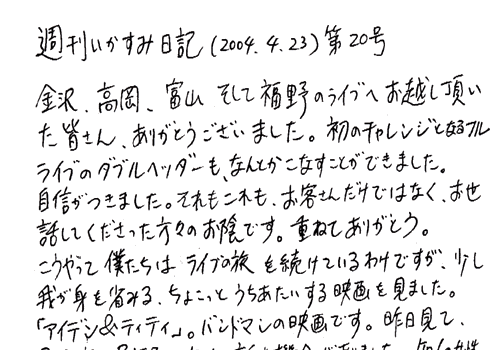 週刊いかすみ日記(2004.4.23)第20号
金沢、高岡、富山 そして福野のライブへお越し頂い
た皆さん、ありがとうございました。初のチャレンジとなるフル
ライブのダブルヘッダーも、なんとかこなすことができました。
自信がつきました。それもこれも、お客さんだけではなく、お世
話してくださった方々のお陰です。重ねてありがとう。
こうやって僕たちはライブの旅を続けているわけですが、少し
我が身を省みる、ちょこっとうちあたいする映画を見ました。
「アイデン&ティティ」。バンドマンの映画です。昨日見て、